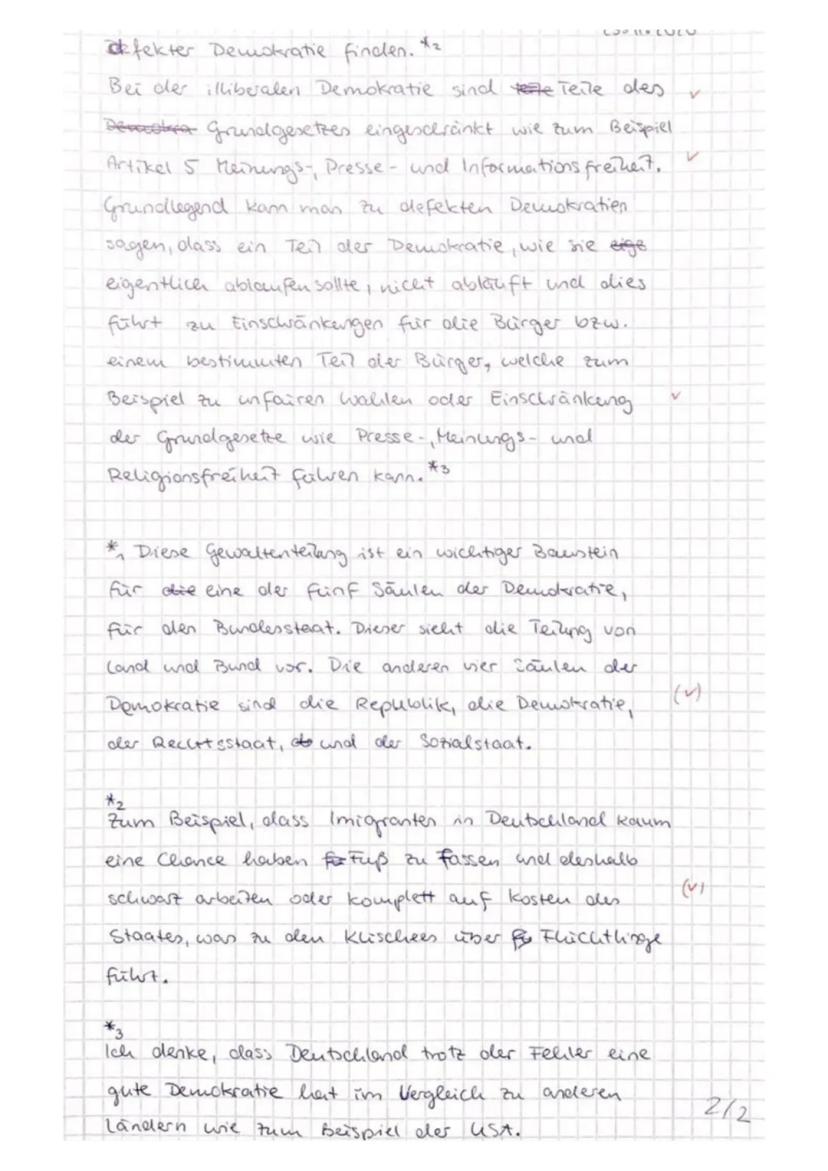 defekter Demokratie finden. *2
Bei der illiberalen Demokratie sind Teile des
Grundgesetzes eingeschränkt wie zum Beispiel
Artikel 5 Meinungs-, Presse- und Informationsfreiheit.
Grundlegend kann man zu defekten Demokratien
sagen, dass ein Teil der Demokratie, wie sie
eigentlich ablaufen sollte, nicht abläuft und dies
führt zu Einschränkungen für die Bürger bzw.
einem bestimmten Teil der Bürger, welche zum
Beispiel zu unfairen Wahlen oder Einschränkung
der Grundgesetze wie Presse-, Meinungs- und
Religionsfreiheit führen kann. *3
*1 Diese Gewaltenteilung ist ein wichtiger Baustein
für die eine der fünf Säulen der Demokratie,
für den Bundesstaat. Dieser sieht die Teilung von
Land und Bund vor. Die anderen vier Säulen der
Demokratie sind die Republik, die Demokratie,
der Rechtsstaat, und der Sozialstaat.
*2
Zum Beispiel, dass Imigranten in Deutschland kaum
eine Chance haben Fuß zu fassen und deshalb
schwarz arbeiten oder komplett auf Kosten des
Staates, was zu den Klischees über Flüchtlinge
führt.
*3
Ich denke, dass Deutschland trotz der Fehler eine
gute Demokratie hat im Vergleich zu anderen
Ländern wie zum Beispiel der USA.
2/2